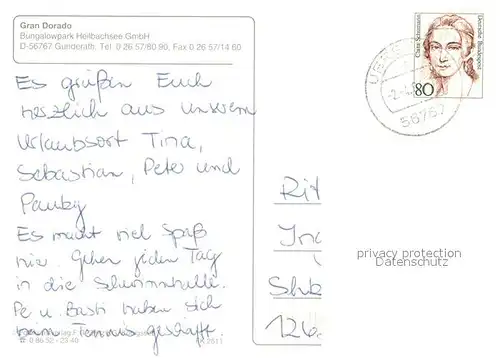 Gran Dorado
Bungalowpark Heilbachsee GmbH
D-56767 Gunderath, Tel. 0 26 57/80 90, Fax 0 26 57/14 60
Es grüßen Euch
herzlich aus unserem
Urlaubsort Tina,
Sebastian, Peter und
Es macht viel Spaß
hier. Gehen jeden Tag
in die Schwimmhalle.
Pe u. Basti haben sich
beim Tennis geschafft.
Clara Schumann
Deutsche Bundespost
80
56767
Rit
privacy protection
Datenschutz
126